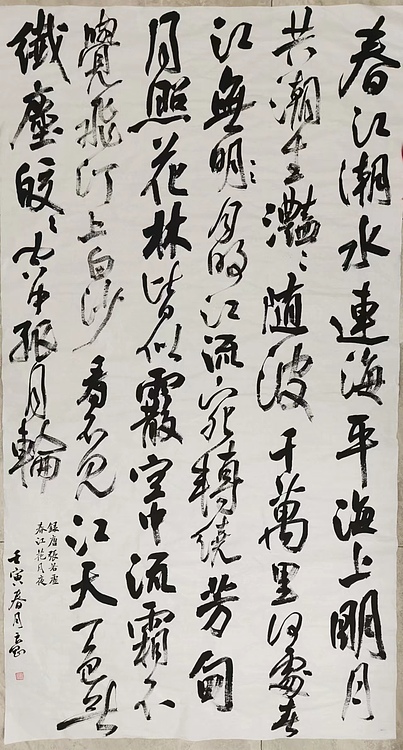 春江潮水連海平海上明月
共潮生灩〻随波千萬里何處春
江無明〻月江流宛轉繞芳甸
月照花林皆似霰空中流霜不
覺飛汀上白沙看不見江天一色無
纖塵皎〻空中孤月輪
録唐張若虛
春江花月夜
壬寅春月